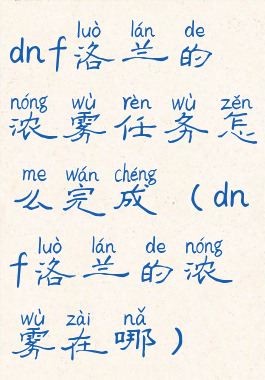 luò lán de
dnf洛兰的
nóng wù rèn wù zěn
浓雾任务怎
me wán chéng
么完成（dn
luò lán de nóng
f洛兰的浓
wù zài nǎ
雾在哪）